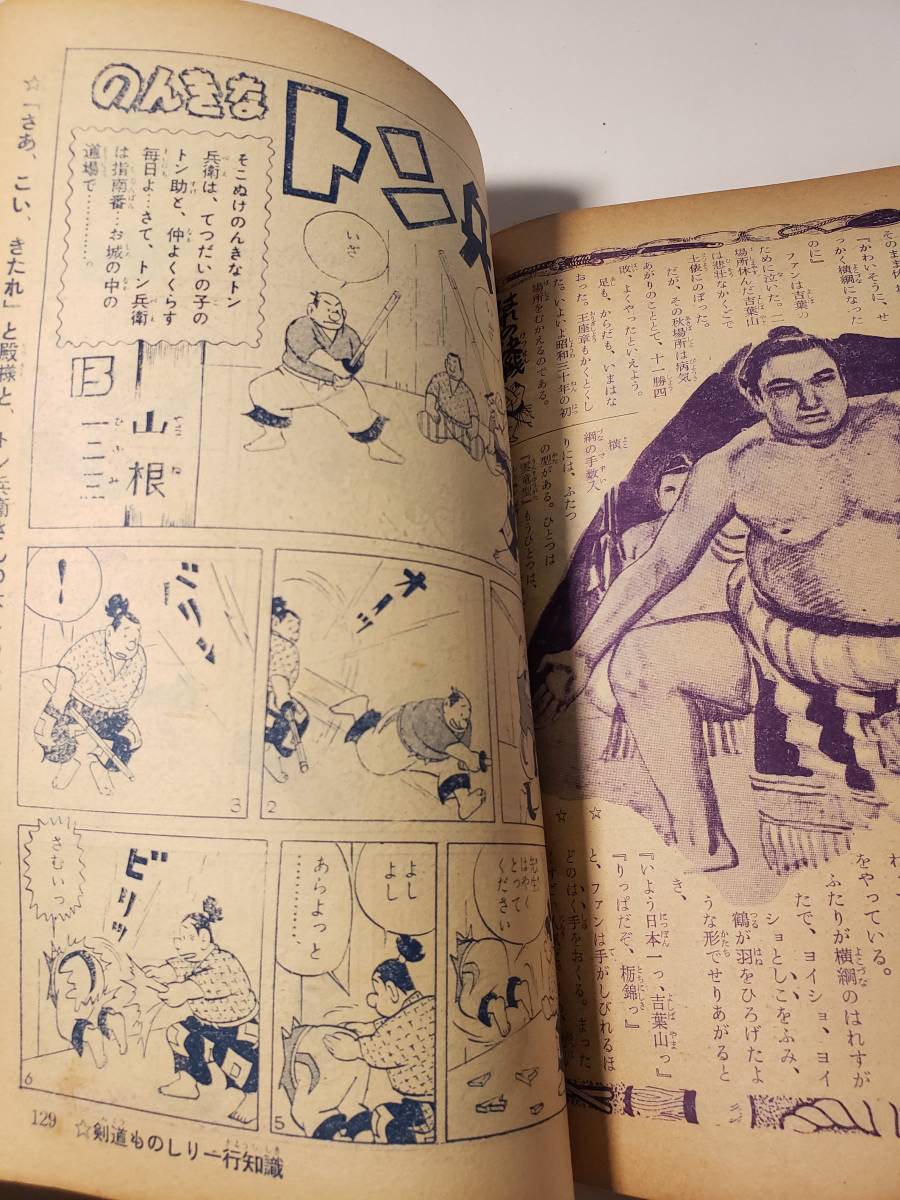 のんきな
トン兵
そこぬけのんきなトン
兵衛は、てつだいの子の
トン助と、仲よくくらす
毎日よ…さて、トン兵衛
は指南番…お城の中の
道場で…………。
山根
一二三
いざ
オーッ
2
バリッ
!
3
先生
はやく
とって
ください
よし
よし
あらよっと
5
ビリッ
さむいっ
6
☆「さあ、こい、きたれ」と殿様と、トン兵衛さんの
129
☆剣道ものしり一行知識
『かわいそうに、せ
っかく横綱になった
のに』
ファンは吉葉の
ために泣いた。二
場所休んだ吉葉山
は悲壮なかくごで
土俵にのぼった。
だが、その秋場所は病気
あがりのこととて、十一勝四
敗、よくやったといえよう。
足も、からだも、いまはな
おった。王座章もかくとくし
た。いよいよ昭和三十年の初
場所をむかえるのである。
横
綱の手数入
りには、ふたつ
の型がある。ひとつは
『雲竜型』もうひとつは、
をやっている。
ふたりが横綱のはれすが
たで、ヨイショ、ヨイ
ショとしこをふみ、
鶴が羽をひろげたよ
うな形でせりあがると
き、
『いよう日本一っ、吉葉山っ』
『りっぱだぞ、栃錦っ』
と、ファンは手がしびれるほ
どのはく手をおくる。まった